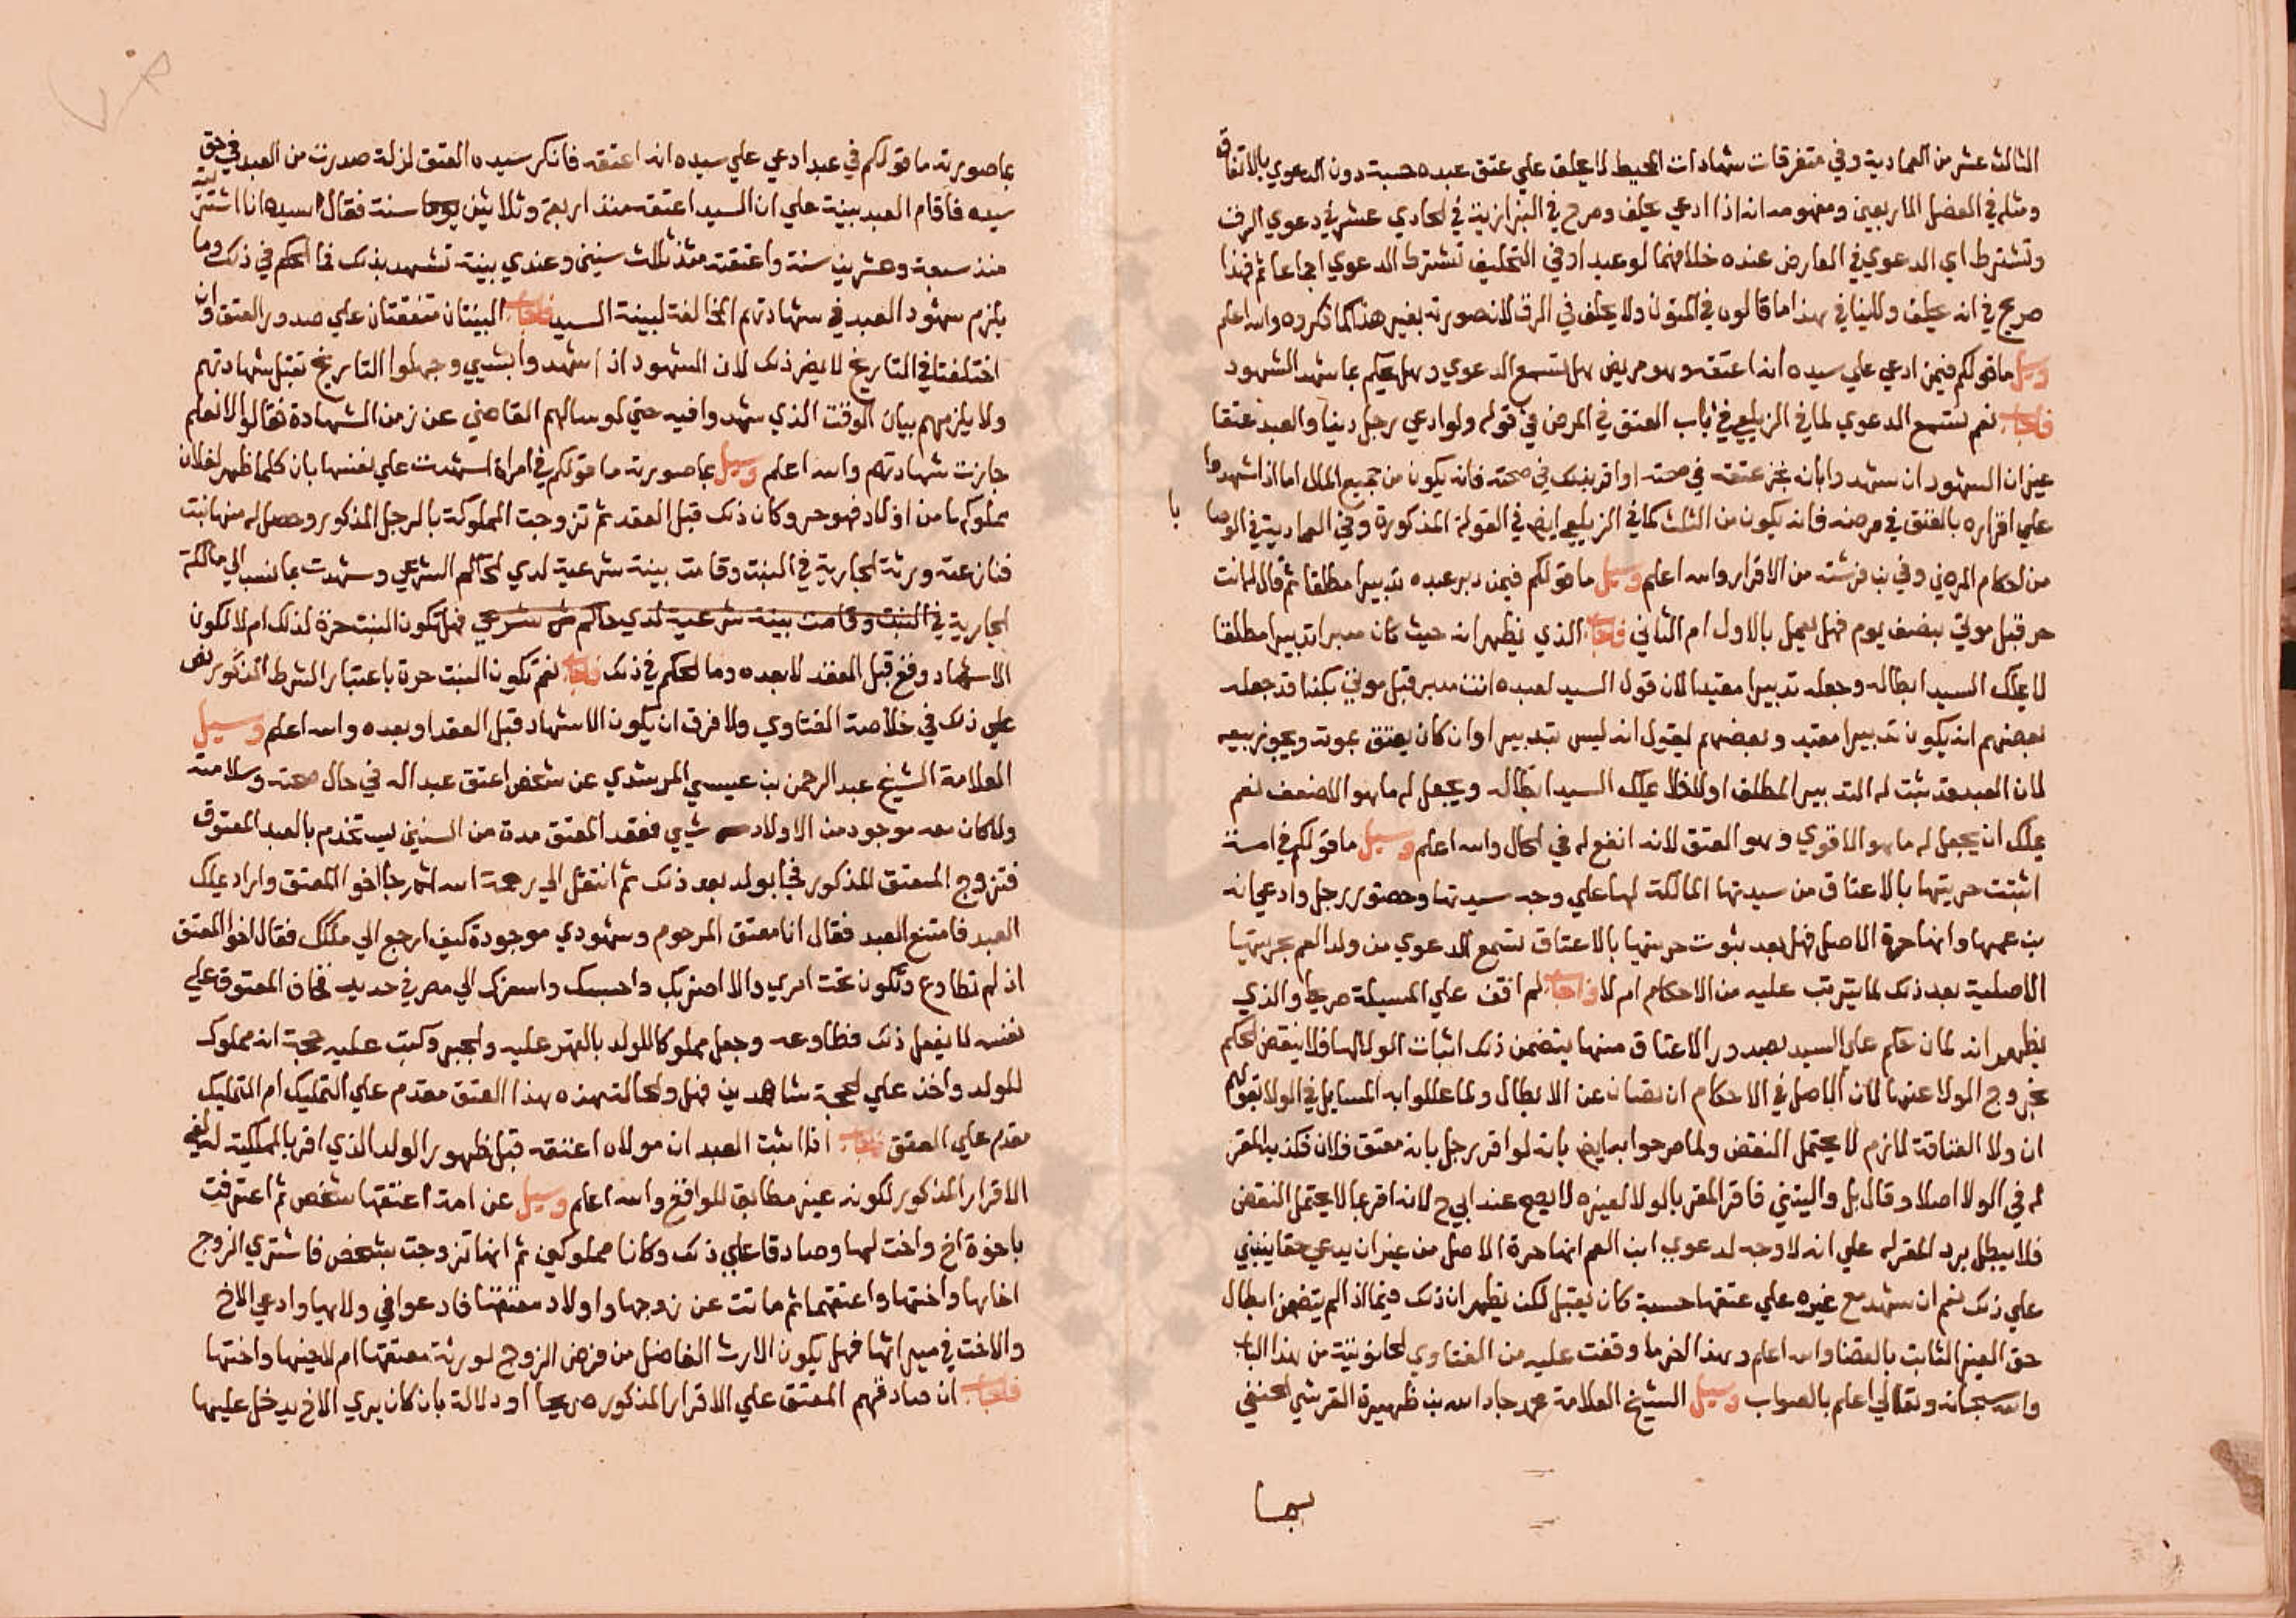 الثالث عشر من العمادية وفي متفرقات شهادات المحيط لا يحلف علي عتق عبده حسبة دون الدعوي بالاتفاق
ومثله في الفصل الاربعين ومفهومه انه اذا ادعي يحلف وصرح في البزازية في الحادي عشر في دعوي الرق
وتشترط اي الدعوي في العارض عنده خلافهما لو عبدا وفي التحليف تشترط الدعوي اجماعا ثم فهذا
صريح في انه يحلف ولا ينافي هذا ما قالوه في المتون ولا يحلف في الرق لان صورته بغير هذا كما ذكروه والله اعلم
وسيل ما قولكم فيمن ادعي علي سيده انه اعتقه وهو مريض هل تسمع الدعوي وهل يحكم بما شهد الشهود
فاجاب نعم تسمع الدعوي لما في الزيلعي في باب العتق في المرض في قوله ولو ادعي رجل دينا والعبد عتقا
غير ان الشهود ان شهدوا بانه نجز عتقه في صحته او اقر بذلك في صحته فانه يكون من جميع المال اما اذا شهدوا
علي اقراره بالعتق في مرضه فانه يكون من الثلث كما في الزيلعي ايضا في القولة المذكورة وفي العمادية في الوصايا
من احكام المرضي وفي بن فرشته من الاقرار والله اعلم وسيل ما قولكم فيمن دبر عبده تدبيرا مطلقا ثم قال له انت
حر قبل موتي بنصف يوم فهل يعمل بالاول ام الثاني فاجاب الذي يظهر انه حيث كان مدبرا تدبيرا مطلقا
لا يملك السيد ابطاله وجعله تدبيرا مقيدا لان قول السيد لعبده انت مدبر قبل موتي بكذا قد جعله
بعضهم انه يكون تدبيرا مقيد وبعضهم يقول انه ليس بتدبير اوان كان يعتق بموته ويجوز بيعه
لان العبد قد ثبت له التدبير المطلق اولا فلا يملك السيد ابطاله ويجعل له ما هو الاضعف نعم
يملك ان يجعل له ما هو الاقوي وهو العتق لانه انفع له في الحال والله اعلم وسيل ما قولكم في امة
اثبتت حريتها بالاعتاق من سيدتها المالكة لها علي وجه سيدتها وحضور رجل وادعي انه
بن عمها وانها حرة الاصل فهل بعد ثبوت حريتها بالاعتاق تسمع الدعوي من ولد العم بحريتها
الاصلية بعد ذلك لما يترتب عليه من الاحكام ام لا فاجاب لم اقف علي المسيلة صريحا والذي
يظهر انه لما ان حكم علي السيد بصدور الاعتاق منها يتضمن ذلك اثبات الولا لها فلا ينقض الحكم
بخروج الولا عنها لان الاصل في الاحكام ان تصان عن الابطال ولما عللوا به المسايل في الولا بقولهم
ان ولا العتاقة لازم لا يحتمل النقض ولما صرحوا به ايضا بانه لو اقر رجل بانه معتق فلان فكذبه المقر
له في الولا اصلا وقال بل واليتني فاقر المقر بالولا لغيره لا يصح عند ابي ح لانه اقر بما لا يحتمل النقض
فلا يبطل برد المقر له علي انه لا وجه لدعوي ابن العم انها حرة الاصل من غير ان يدعي حقا ينبني
علي ذلك نعم ان شهد مع غيره علي عتقها حسبة كان يقبل لكن يظهر ان ذلك فيما اذا لم يتضمن ابطال
حق الغير الثابت بالقضا والله اعلم وهذا اخر ما وقفت عليه من الفتاوي الحانوتية من هذا الباب
والله سبحانه وتعالي اعلم بالصواب وسيل الشيخ العلامة محمد جار الله بن ظهيرة القرشي الحنفي
بما
بما صورته ما قولكم في عبد ادعي علي سيده انه اعتقه فانكر سيده العتق لزلة صدرت من العبد في حق
سيده فاقام العبد بينة علي ان السيد اعتقه منذ اربعة وثلاثين يوما سنة فقال السيد انا اشتريته
منذ سبعة وعشرين سنة واعتقته منذ ثلاث سنين وعندي بينة تشهد بذلك فما الحكم في ذلك وما
يلزم شهود العبد في شهادتهم المخالفة لبينة السيد فاجاب البينتان متفقتان علي صدور العتق وان
اختلفتا في التاريخ لا يضر ذلك لان الشهود اذا شهدوا بشي وجهلوا التاريخ تقبل شهادتهم
ولا يلزمهم بيان الوقت الذي شهدوا فيه حتي لو سالهم القاضي عن زمن الشهادة فقالوا لا نعلم
جازت شهادتهم والله اعلم وسيل بما صورته ما قولكم في امراة اشهدت علي نفسها بان كلما ظهر لفلان
مملوكها من اولاد فهو حر وكان ذلك قبل العقد ثم تزوجت المملوكة بالرجل المذكور وحصل له منها بنت
فنازعته ورثة الجارية في البنت وقامت بينة شرعية لدي الحاكم الشرعي وشهدت بما نسب الي مالكة
الجارية في البنت وقامت بينة شرعية لدي حاكم شرعي فهل تكون البنت حرة لذلك ام لا لكون
الاشهاد وقع قبل العقد لا بعده وما الحكم في ذلك فاجاب نعم تكون البنت حرة باعتبار الشرط المذكور نص
علي ذلك في خلاصة الفتاوي ولا فرق ان يكون الاشهاد قبل العقد او بعده والله اعلم وسيل
العلامة الشيخ عبد الرحمن بن عيسي المرشدي عن شخص اعتق عبدا له في حال صحته وسلامته
ولا كان معه موجود من الاولاد شي ففقد المعتق مدة من السنين يستخدم بالعبد المعتوق
فتزوج المعتق المذكور فجا بولد بعد ذلك ثم انتقل الي رحمة الله ثم جا اخو المعتق واراد يملك
العبد فامتنع العبد فقال انا معتق المرحوم وشهودي موجودة كيف ارجع الي ملكك فقال اخو المعتق
اذ لم تطاوع وتكون تحت امري والا اضربك واحبسك واسفرك الي مصر في حديد فخاف المعتوق علي
نفسه لا يفعل ذلك فطاوعه وجعل مملوكا للولد بالقهر عليه والجبر وكتب عليه حجة انه مملوك
للولد واخذ علي الحجة شاهدين فهل والحالة هذه هذا العتق مقدم علي التمليك ام التمليك
مقدم علي العتق فاجاب اذا اثبت العبد ان مولاه اعتقه قبل ظهور الولد الذي اقر بالملكية له يلغي
الاقرار المذكور لكونه غير مطابق للواقع والله اعلم وسيل عن امة اعتقها شخص ثم اعترفت
باخوة اخ واخت لها وصادقا علي ذلك وكانا مملوكين ثم انها تزوجت بشخص فاشتري الزوج
اخاها واختها واعتقهما ثم ماتت عن زوجها واولاد معتقها فادعوا في ولاها وادعي الاخ
والاخت في ميراثها فهل يكون الارث الفاضل من فرض الزوج لورثة معتقها ام لاخيها واختها
فاجاب ان صادقهم المعتق علي الاقرار المذكور صريحا او دلالة بان كان يري الاخ يدخل عليها